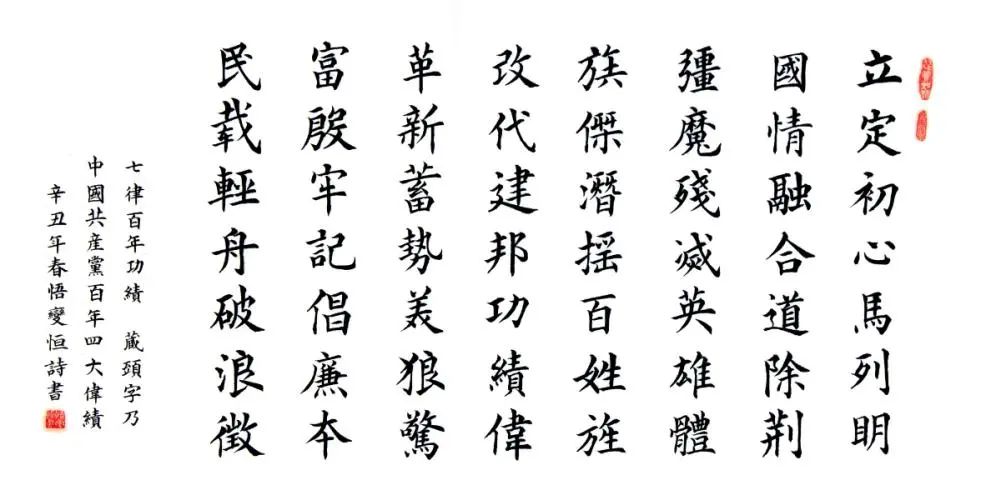 立定初心馬列明
國情融合道除荆
彊魔殘滅英雄體
族傑潛摇百姓旌
改代建邦功績偉
革新蓄勢美狼驚
富殷牢記倡廉本
民載輕舟破浪徵
七律百年功績 藏頭字乃
中國共産黨百年四大偉績
辛丑年春悟變恒詩書